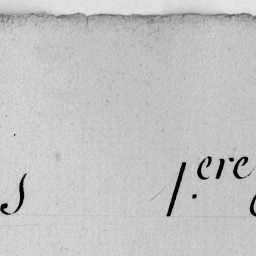 s 1.ere